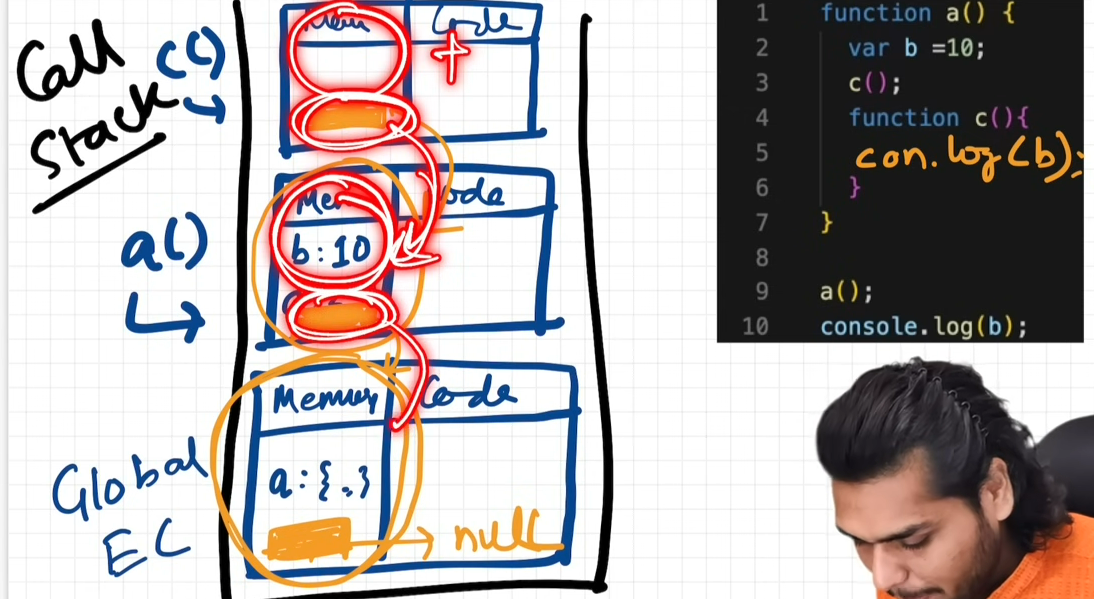 Call
Stack
c()
Mem
Code
a()
Mem
Code
b:10
Global
EC
Memory
Code
a:{.}
null
1 function a() {
2 var b =10;
3 c();
4 function c(){
5 con.log(b);
6 }
7 }
8
9 a();
10 console.log(b);